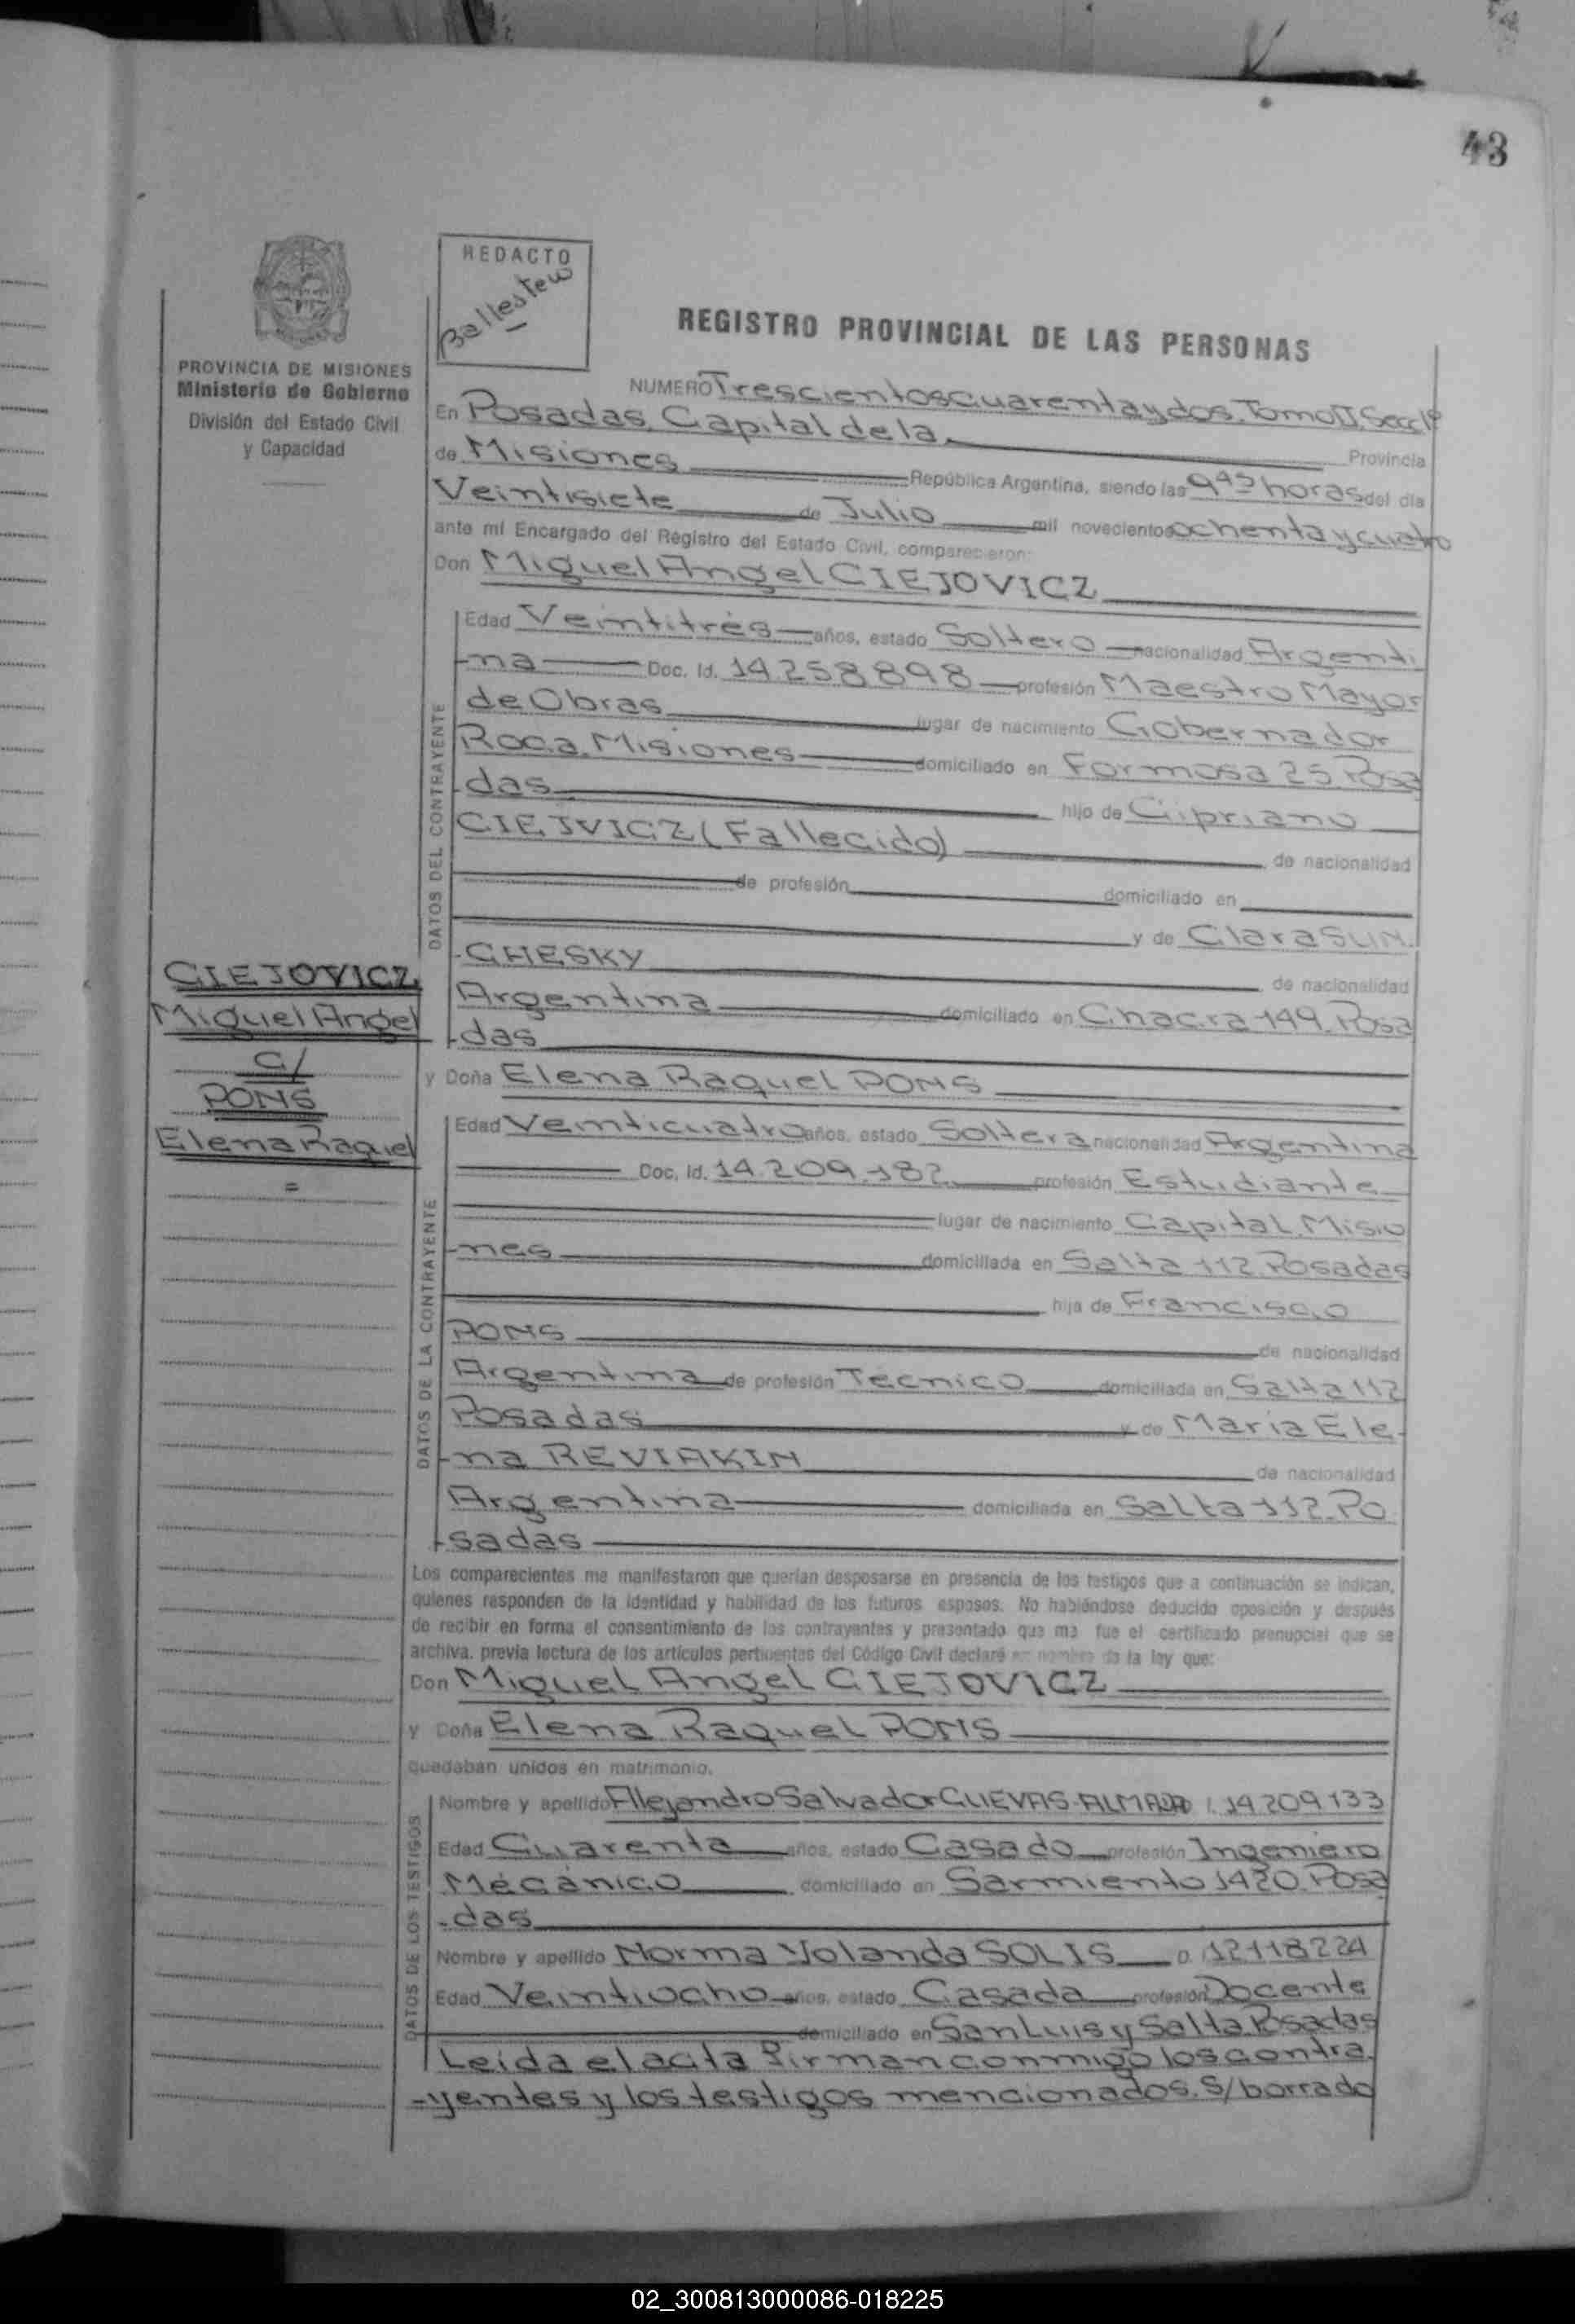 43
REDACTO
Ballestew
REGISTRO PROVINCIAL DE LAS PERSONAS
PROVINCIA DE MISIONES
Ministerio de Gobierno
División del Estado Civil
y Capacidad
NUMERO Trescientos cuarenta y dos. Tomo II. Secc 1ª
En Posadas, Capital de la Provincia
de Misiones República Argentina, siendo las 9 45 horas del día
Veintisiete de Julio mil novecientos ochenta y cuatro
ante mí Encargado del Registro del Estado Civil, comparecieron:
Don Miguel Angel CIEJOVICZ
DATOS DEL CONTRAYENTE
Edad Veintitrés años, estado Soltero nacionalidad Argenti
-na Doc. Id. 14.258.898 profesión Maestro Mayor
de Obras lugar de nacimiento Gobernador
Roca. Misiones domiciliado en Formosa 25. Posa
-das hijo de Cipriano
CIEJVICZ (Fallecido) de nacionalidad
de profesión domiciliado en
y de Clara SUN
-CHESKY de nacionalidad
Argentina domiciliado en Chacra 149. Posa
-das
CIEJOVICZ
Miguel Angel
C/
PONS
Elena Raquel
=
y Doña Elena Raquel PONS
DATOS DE LA CONTRAYENTE
Edad Veinticuatro años, estado Soltera nacionalidad Argentina
Doc. Id. 14.209.182 profesión Estudiante
lugar de nacimiento Capital. Misio
-nes domiciliada en Salta 112. Posadas
hija de Francisco
PONS de nacionalidad
Argentina de profesión Técnico domiciliada en Salta 112
Posadas y de María Ele-
-na REVIAKIN de nacionalidad
Argentina domiciliada en Salta 112. Po
-sadas
Los comparecientes me manifestaron que querían desposarse en presencia de los testigos que a continuación se indican,
quienes responden de la identidad y habilidad de los futuros esposos. No habiéndose deducido oposición y después
de recibir en forma el consentimiento de los contrayentes y presentado que me fue el certificado prenupcial que se
archiva, previa lectura de los artículos pertinentes del Código Civil declaré en nombre de la ley que:
Don Miguel Angel CIEJOVICZ
y Doña Elena Raquel PONS
quedaban unidos en matrimonio.
DATOS DE LOS TESTIGOS
Nombre y apellido Allejandro Salvador CUEVAS 14.209.133
Edad Cuarenta años, estado Casado profesión Ingeniero
Mécánico domiciliado en Sarmiento 1420. Posa
-das
Nombre y apellido Norma Yolanda SOLIS 12118224
Edad Veintiocho años, estado Casada profesión Docente
domiciliado en San Luis y Salta. Posadas
Leída el acta firman conmigo los contra
-yentes y los testigos mencionados. S/borrado
02_300813000086-018225